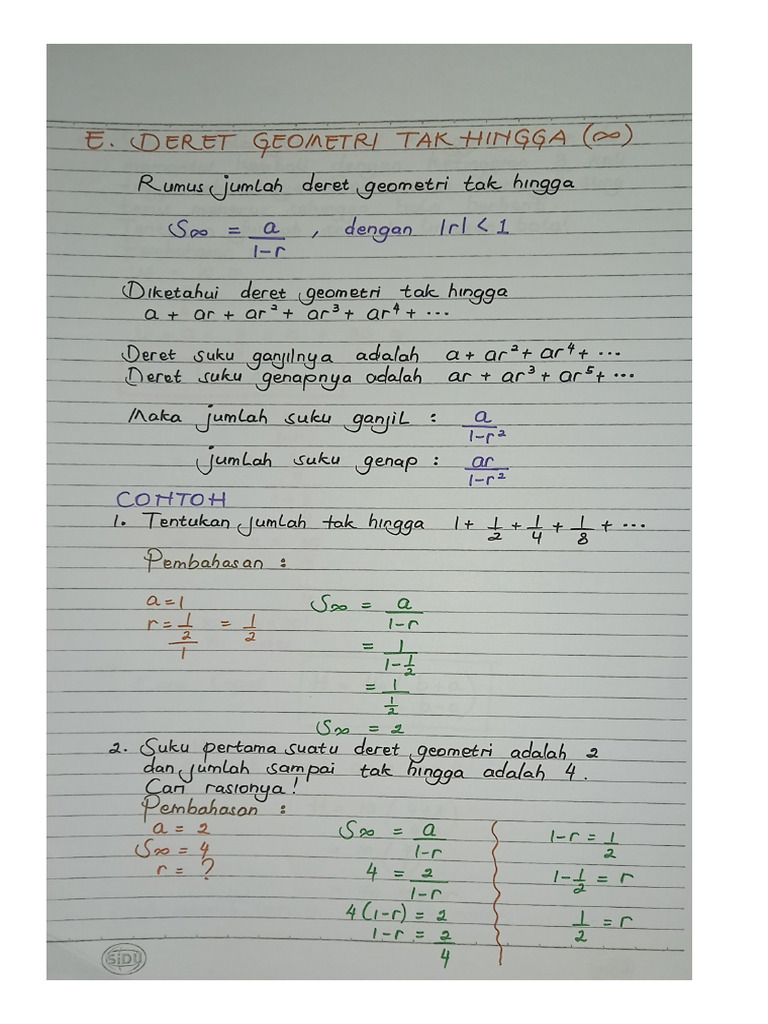 E. DERET GEOMETRI TAK HINGGA (∞)
Rumus jumlah deret geometri tak hingga
S∞ = a/(1-r) , dengan |r| < 1
Diketahui deret geometri tak hingga
a + ar + ar² + ar³ + ar⁴ + ...
Deret suku ganjilnya adalah a + ar² + ar⁴ + ...
Deret suku genapnya adalah ar + ar³ + ar⁵ + ...
Maka jumlah suku ganjil : a/(1-r²)
jumlah suku genap : ar/(1-r²)
CONTOH
1. Tentukan jumlah tak hingga 1 + 1/2 + 1/4 + 1/8 + ...
Pembahasan :
a = 1
r = (1/2)/1 = 1/2
S∞ = a/(1-r)
= 1/(1-1/2)
= 1/(1/2)
S∞ = 2
2. Suku pertama suatu deret geometri adalah 2
dan jumlah sampai tak hingga adalah 4.
Cari rasionya!
Pembahasan :
a = 2
S∞ = 4
r = ?
S∞ = a/(1-r)
4 = 2/(1-r)
4(1-r) = 2
1-r = 2/4
1-r = 1/2
1-1/2 = r
1/2 = r
SiDU